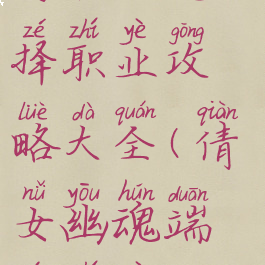 zé zhí yè gōng
择职业攻
lüè dà quán qiàn
略大全(倩
nǚ yōu hún duān
女幽魂端